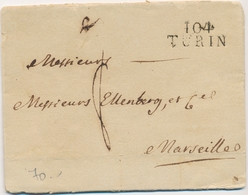 104
TURIN
Messieurs
Messieurs Ellenberg, et Cie
Marseille
70